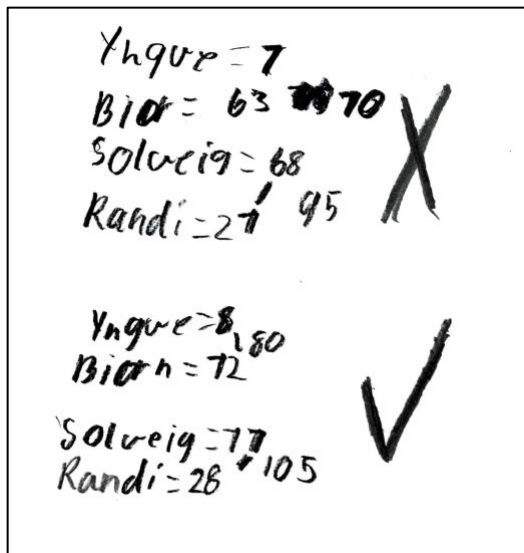 Yngve = 7
Biør = 63 70
Solveig = 68
Randi = 27 95
Yngve = 8
80
Biørn = 72
Solveig = 77
Randi = 28 105